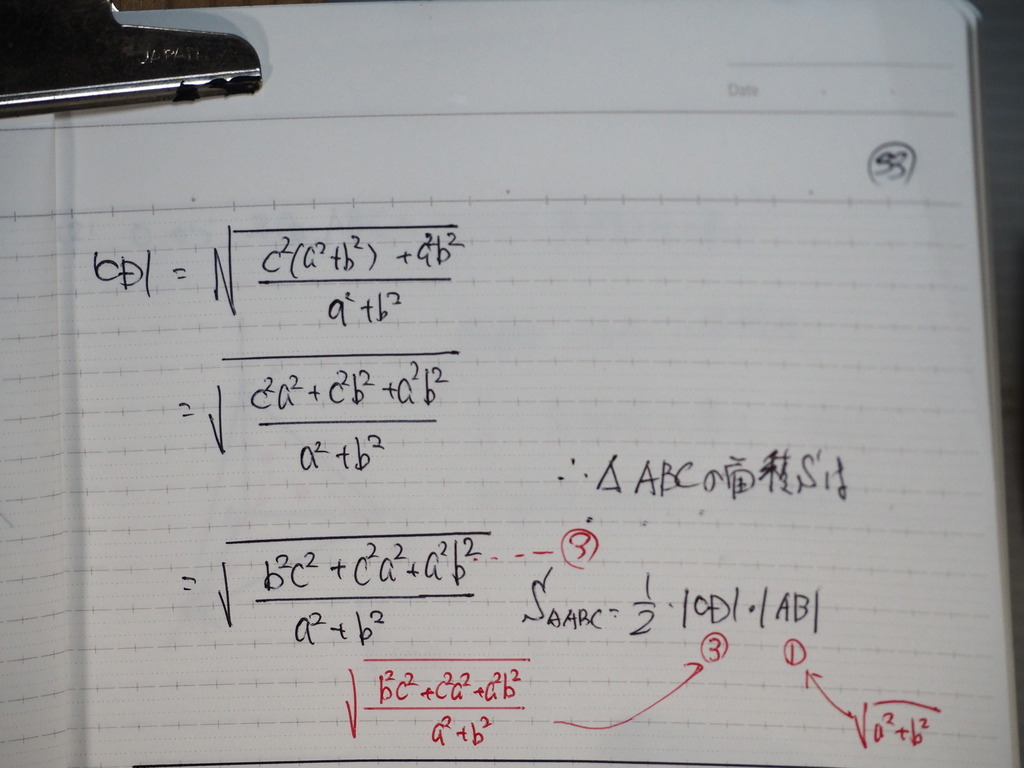 JAPAN
Date
53
|CD| = √((c²(a²+b²) + a²b²)/(a²+b²))
= √((c²a² + c²b² + a²b²)/(a²+b²))
∴ △ABCの面積Sは
= √((b²c² + c²a² + a²b²)/(a²+b²)) ---- ③
S△ABC = 1/2 ・ |CD| ・ |AB|
③ ①
√((b²c² + c²a² + a²b²)/(a²+b²))
√(a²+b²)